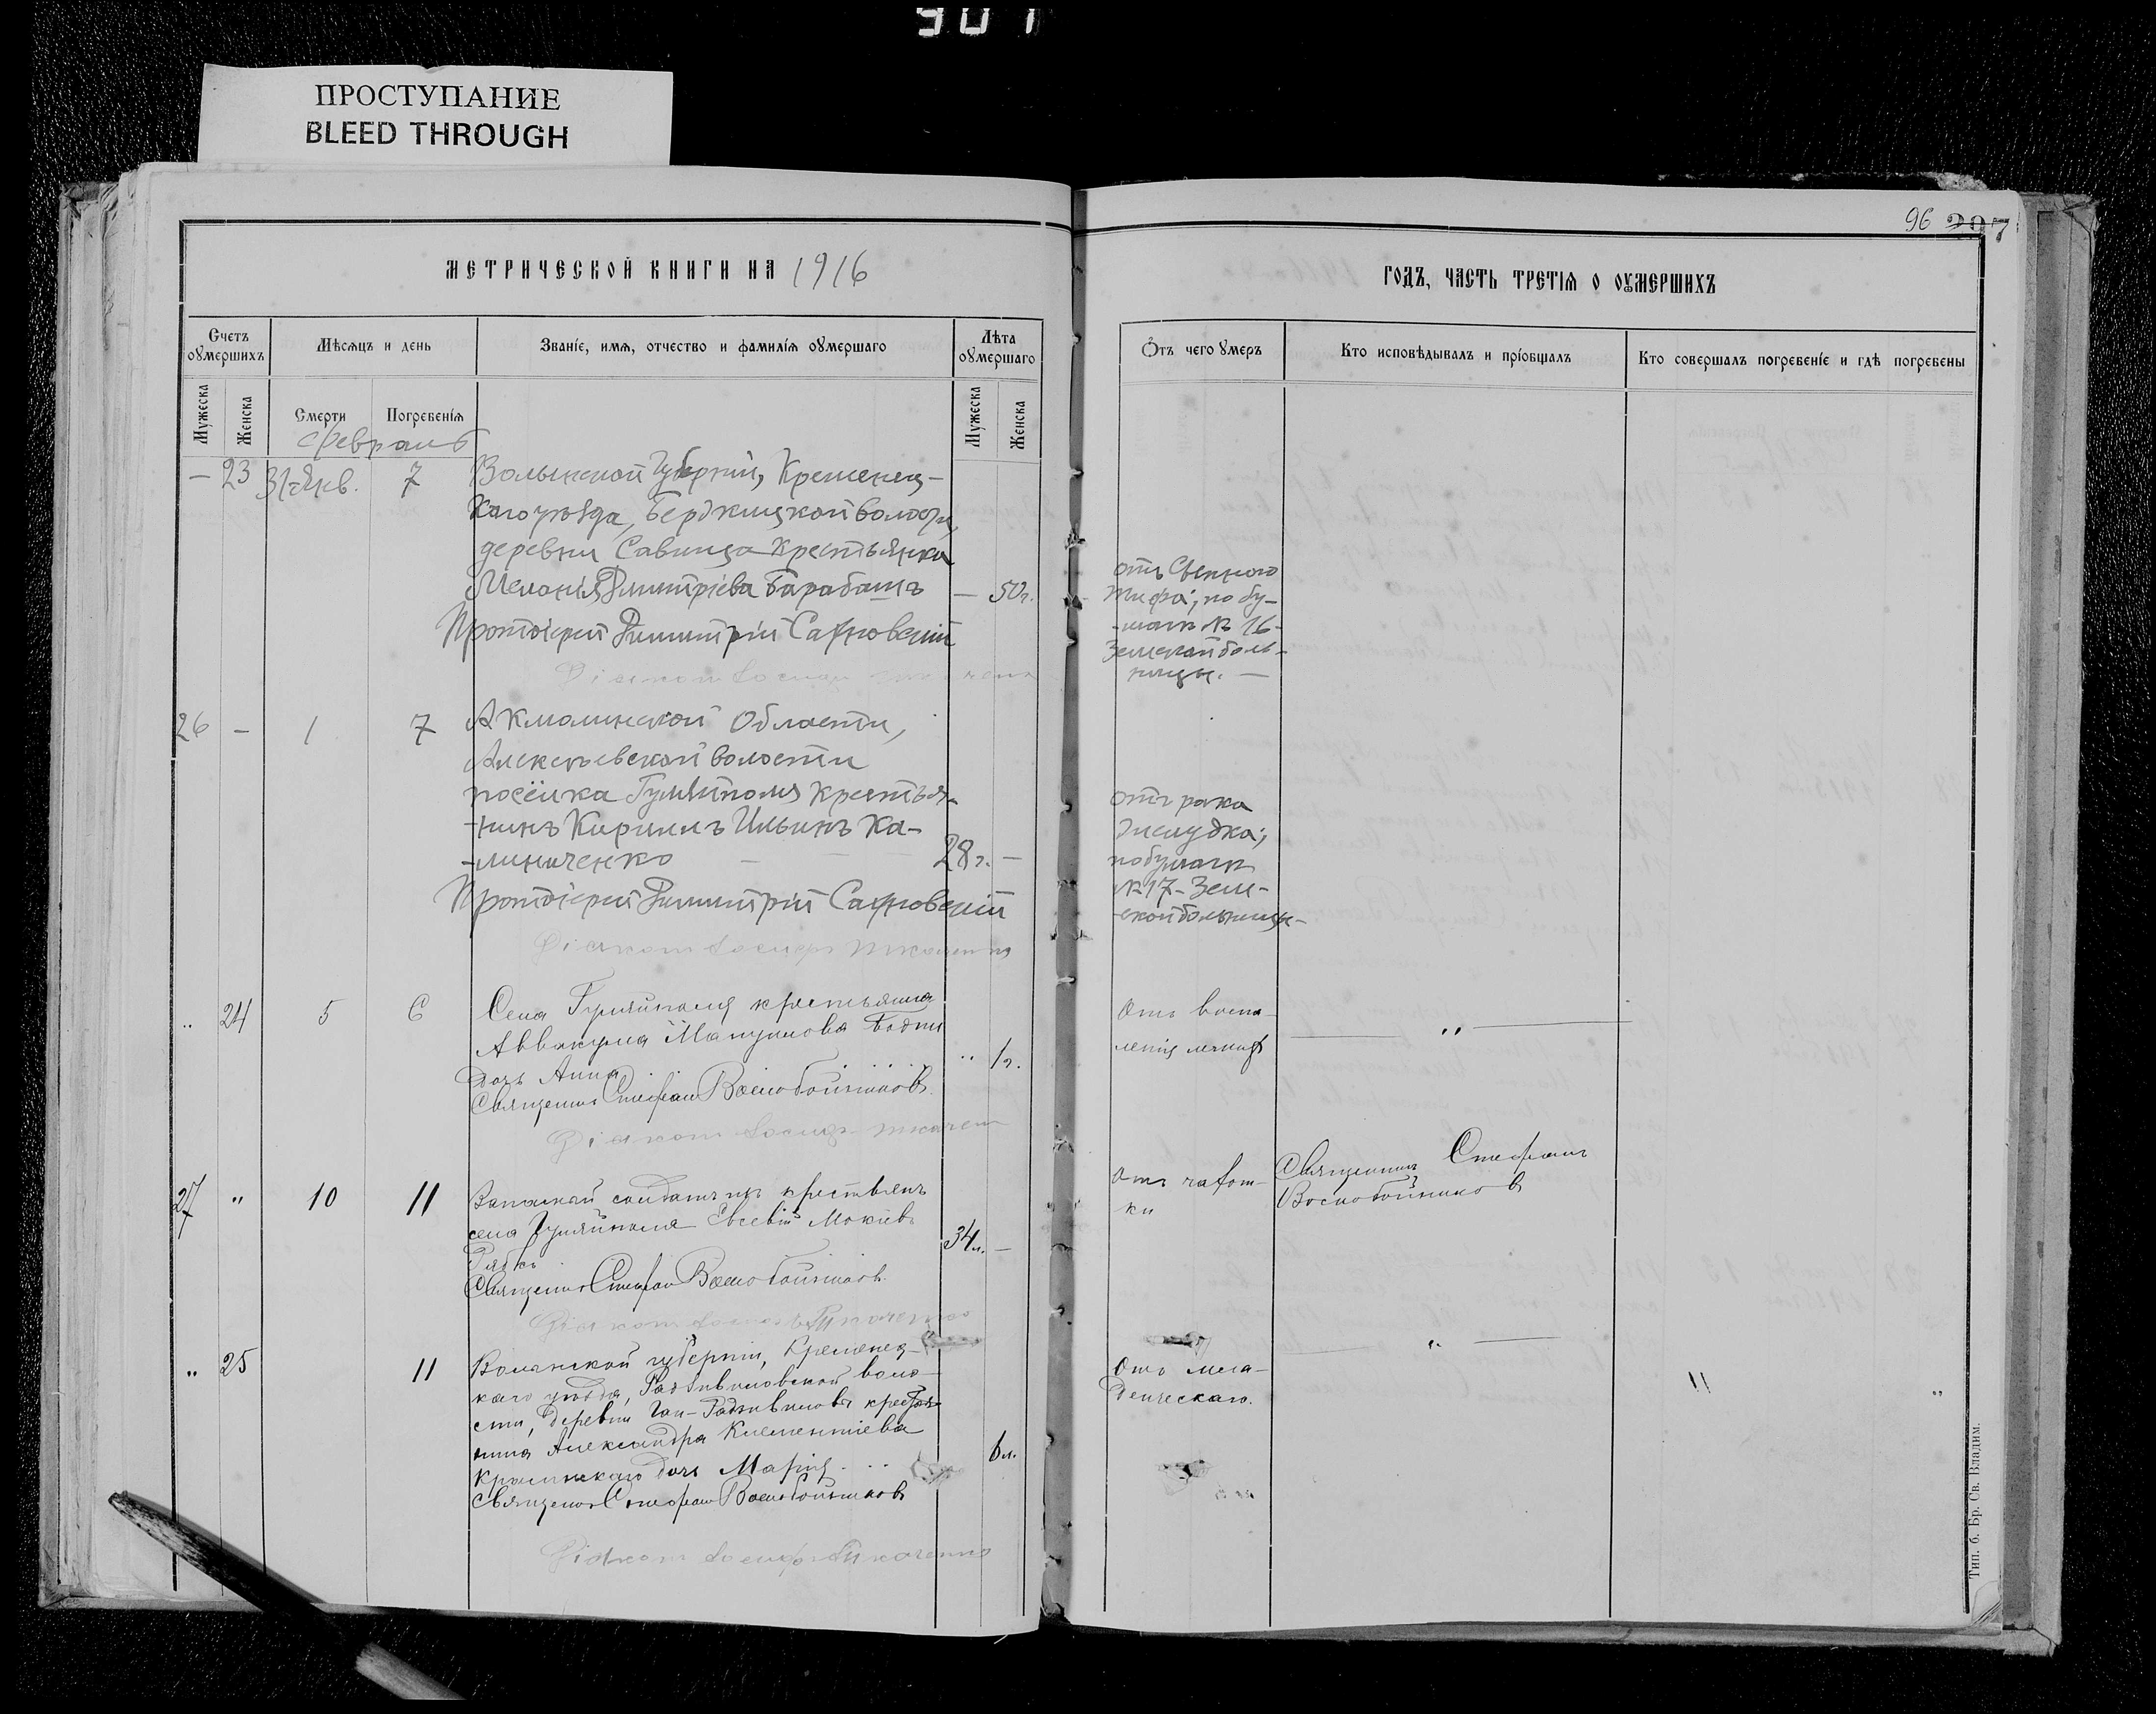 901
ПРОСТУПАНИЕ
BLEED THROUGH
96 207
МЕТРИЧЕСКОЙ КНИГИ НА 1916
ГОДЪ, ЧАСТЬ ТРЕТІЯ О ОУМЕРШИХЪ
Счетъ оумершихъ
Мѣсяцъ и день
Званіе, имя, отчество и фамилія оумершаго
Лѣта оумершаго
Отъ чего умеръ
Кто исповѣдывалъ и пріобщалъ
Кто совершалъ погребеніе и гдѣ погребены
Мужеска
Женска
Смерти
Погребенія
Мужеска
Женска
Февраль
— 23 31-Янв. 7 Волынской Губерніи, Кременец-
каго уѣзда, волости,
деревни Савица Крестьянка
Меланія Димитріева Барабашъ — 50 г.
Протоіерей Димитрій Сахновскій
Діаконъ Іосифъ
отъ Сыпного
тифа; по бу-
-магѣ № 16-
Земской боль-
ницы. —
26 — 1 7 Акмолинской Области,
Алексѣевской волости
посёлка Гуляйполя Крестья-
-нинъ Кириллъ Ильинъ Ка-
-линиченко — — 28 г. —
Протоіерей Димитрій Сахновскій
Діаконъ Іосифъ Ткаченко
отъ рака
желудка;
по бумагѣ
№ 17- Зем-
-ской больницы-
„ 24 5 6 Села Гуляйполя крестьянина
Аввакума
дочь Анна „ 1 г.
Священникъ Стефанъ Воскобойниковъ
Діаконъ Іосифъ Ткаченко
Отъ воспа-
ленія легкихъ
— „ —
27 „ 10 11 солдатъ изъ крестьянъ
села Гуляйполя Евсевій Мокіевъ
Рябко 34 л. —
Священникъ Стефанъ Воскобойниковъ
Діаконъ Іосифъ Ткаченко
Отъ чахот-
ки
Священникъ Стефанъ
Воскобойниковъ
„ 25 11 Волынской губерніи, Кременец-
каго уѣзда, Радзивиловской воло-
сти, деревни Гаи-Радзивиловъ крестья-
нина Александра Климентіева
дочь Марія 6 л.
Священникъ Стефанъ Воскобойниковъ
Діаконъ Іосифъ Ткаченко
Отъ мла-
денческаго.
— „ —
„ „
Тип. б. Бр. Св. Владим.